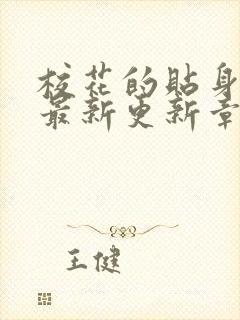 校花的貼身
最新更新章
王健